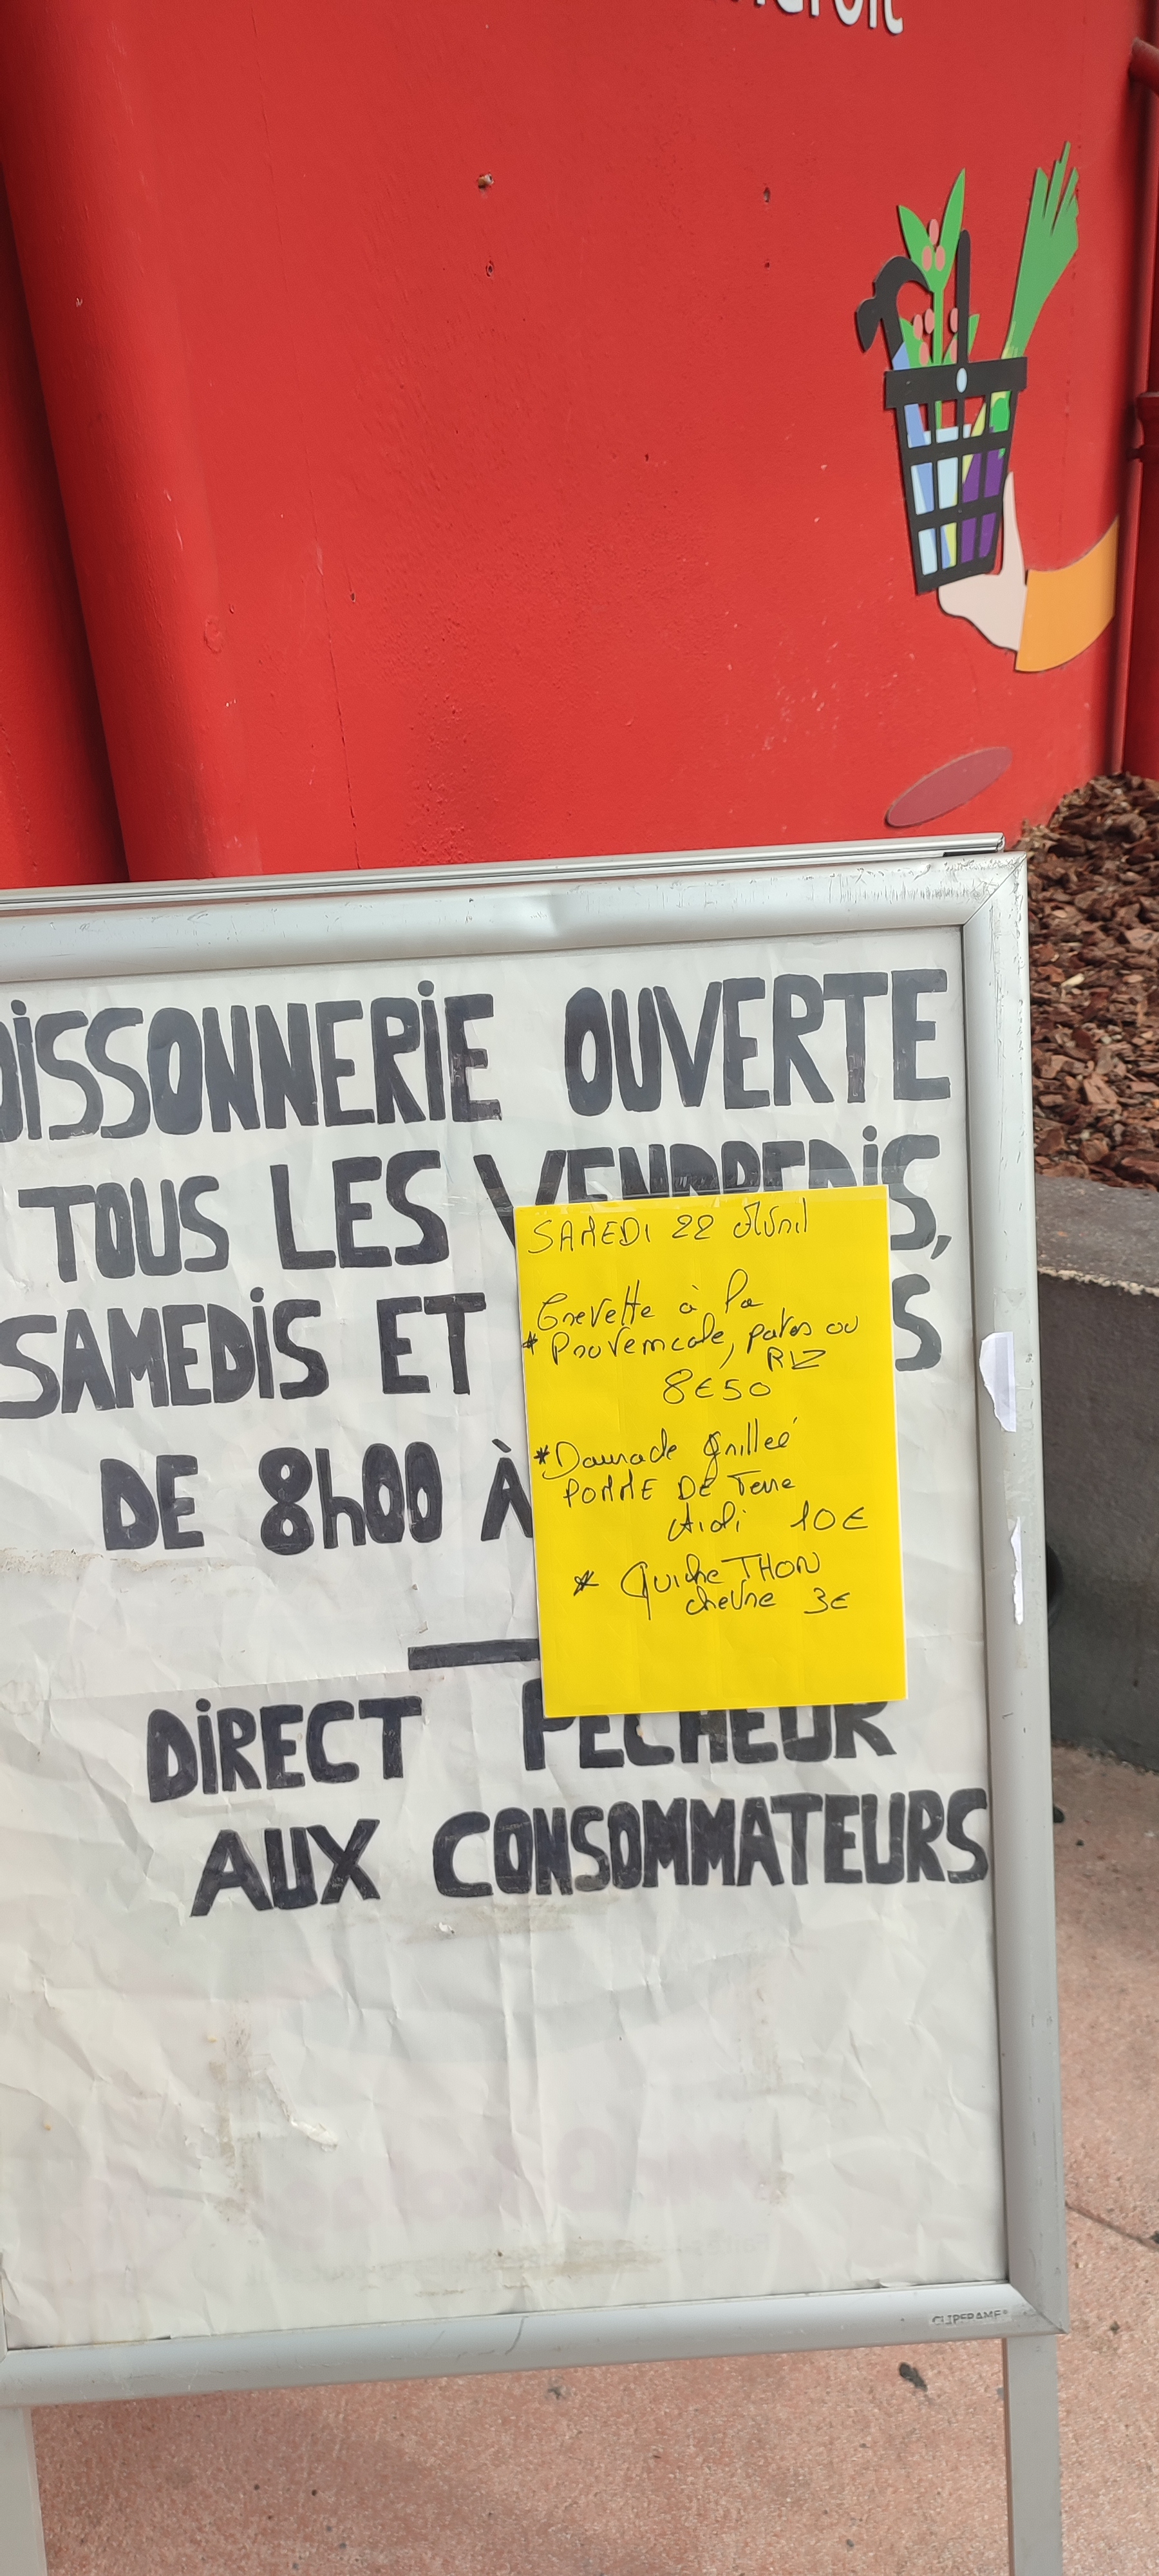 OISSONNERIE OUVERTE
TOUS LES VENDREDIS,
SAMEDIS ET S
DE 8h00 À
DIRECT PECHEUR
AUX CONSOMMATEURS
SAMEDI 22 Avril
Crevette à la
* Provencale, pates ou
RIZ
8€50
* Daurade Grilleé
POMME DE Terre
Aioli 10€
* Quiche THON
chevre 3€
CLIPFRAME